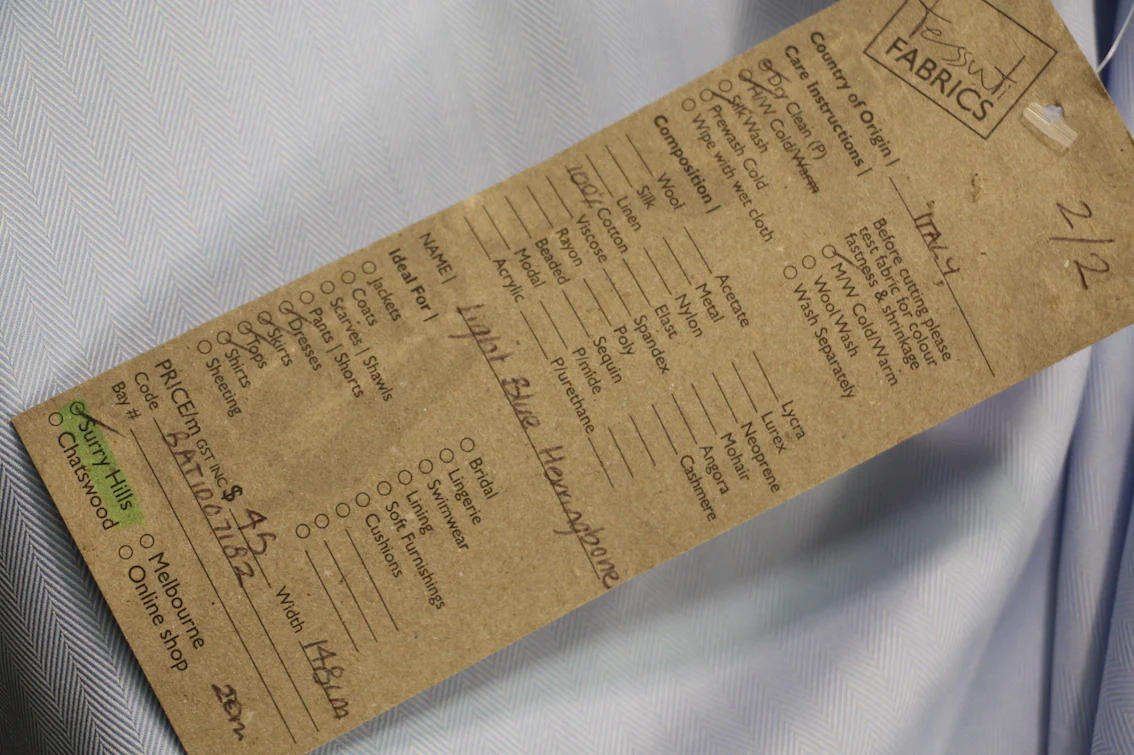 Tessuti
FABRICS
2/2
Country of Origin | "ITALY"
Care Instructions |
Dry Clean (P)
H/W Cold/Warm
Silk Wash
Prewash Cold
Wipe with wet cloth
Before cutting please
test fabric for colour
fastness & shrinkage
M/W Cold/Warm
Wool Wash
Wash Separately
Composition |
Wool
Silk
Linen
100% Cotton
Viscose
Rayon
Beaded
Modal
Acrylic
Acetate
Metal
Nylon
Elast
Spandex
Poly
Sequin
P/mide
P/urethane
Lycra
Lurex
Neoprene
Mohair
Angora
Cashmere
NAME | Light Blue Herringbone
Ideal For |
Jackets
Coats
Scarves | Shawls
Pants | Shorts
Dresses
Skirts
Tops
Shirts
Sheeting
Bridal
Lingerie
Swimwear
Lining
Soft Furnishings
Cushions
PRICE/m GST INC $45 Width 148cm
Code BAT1007182
Bay #
Surry Hills
Chatswood
Melbourne
Online shop